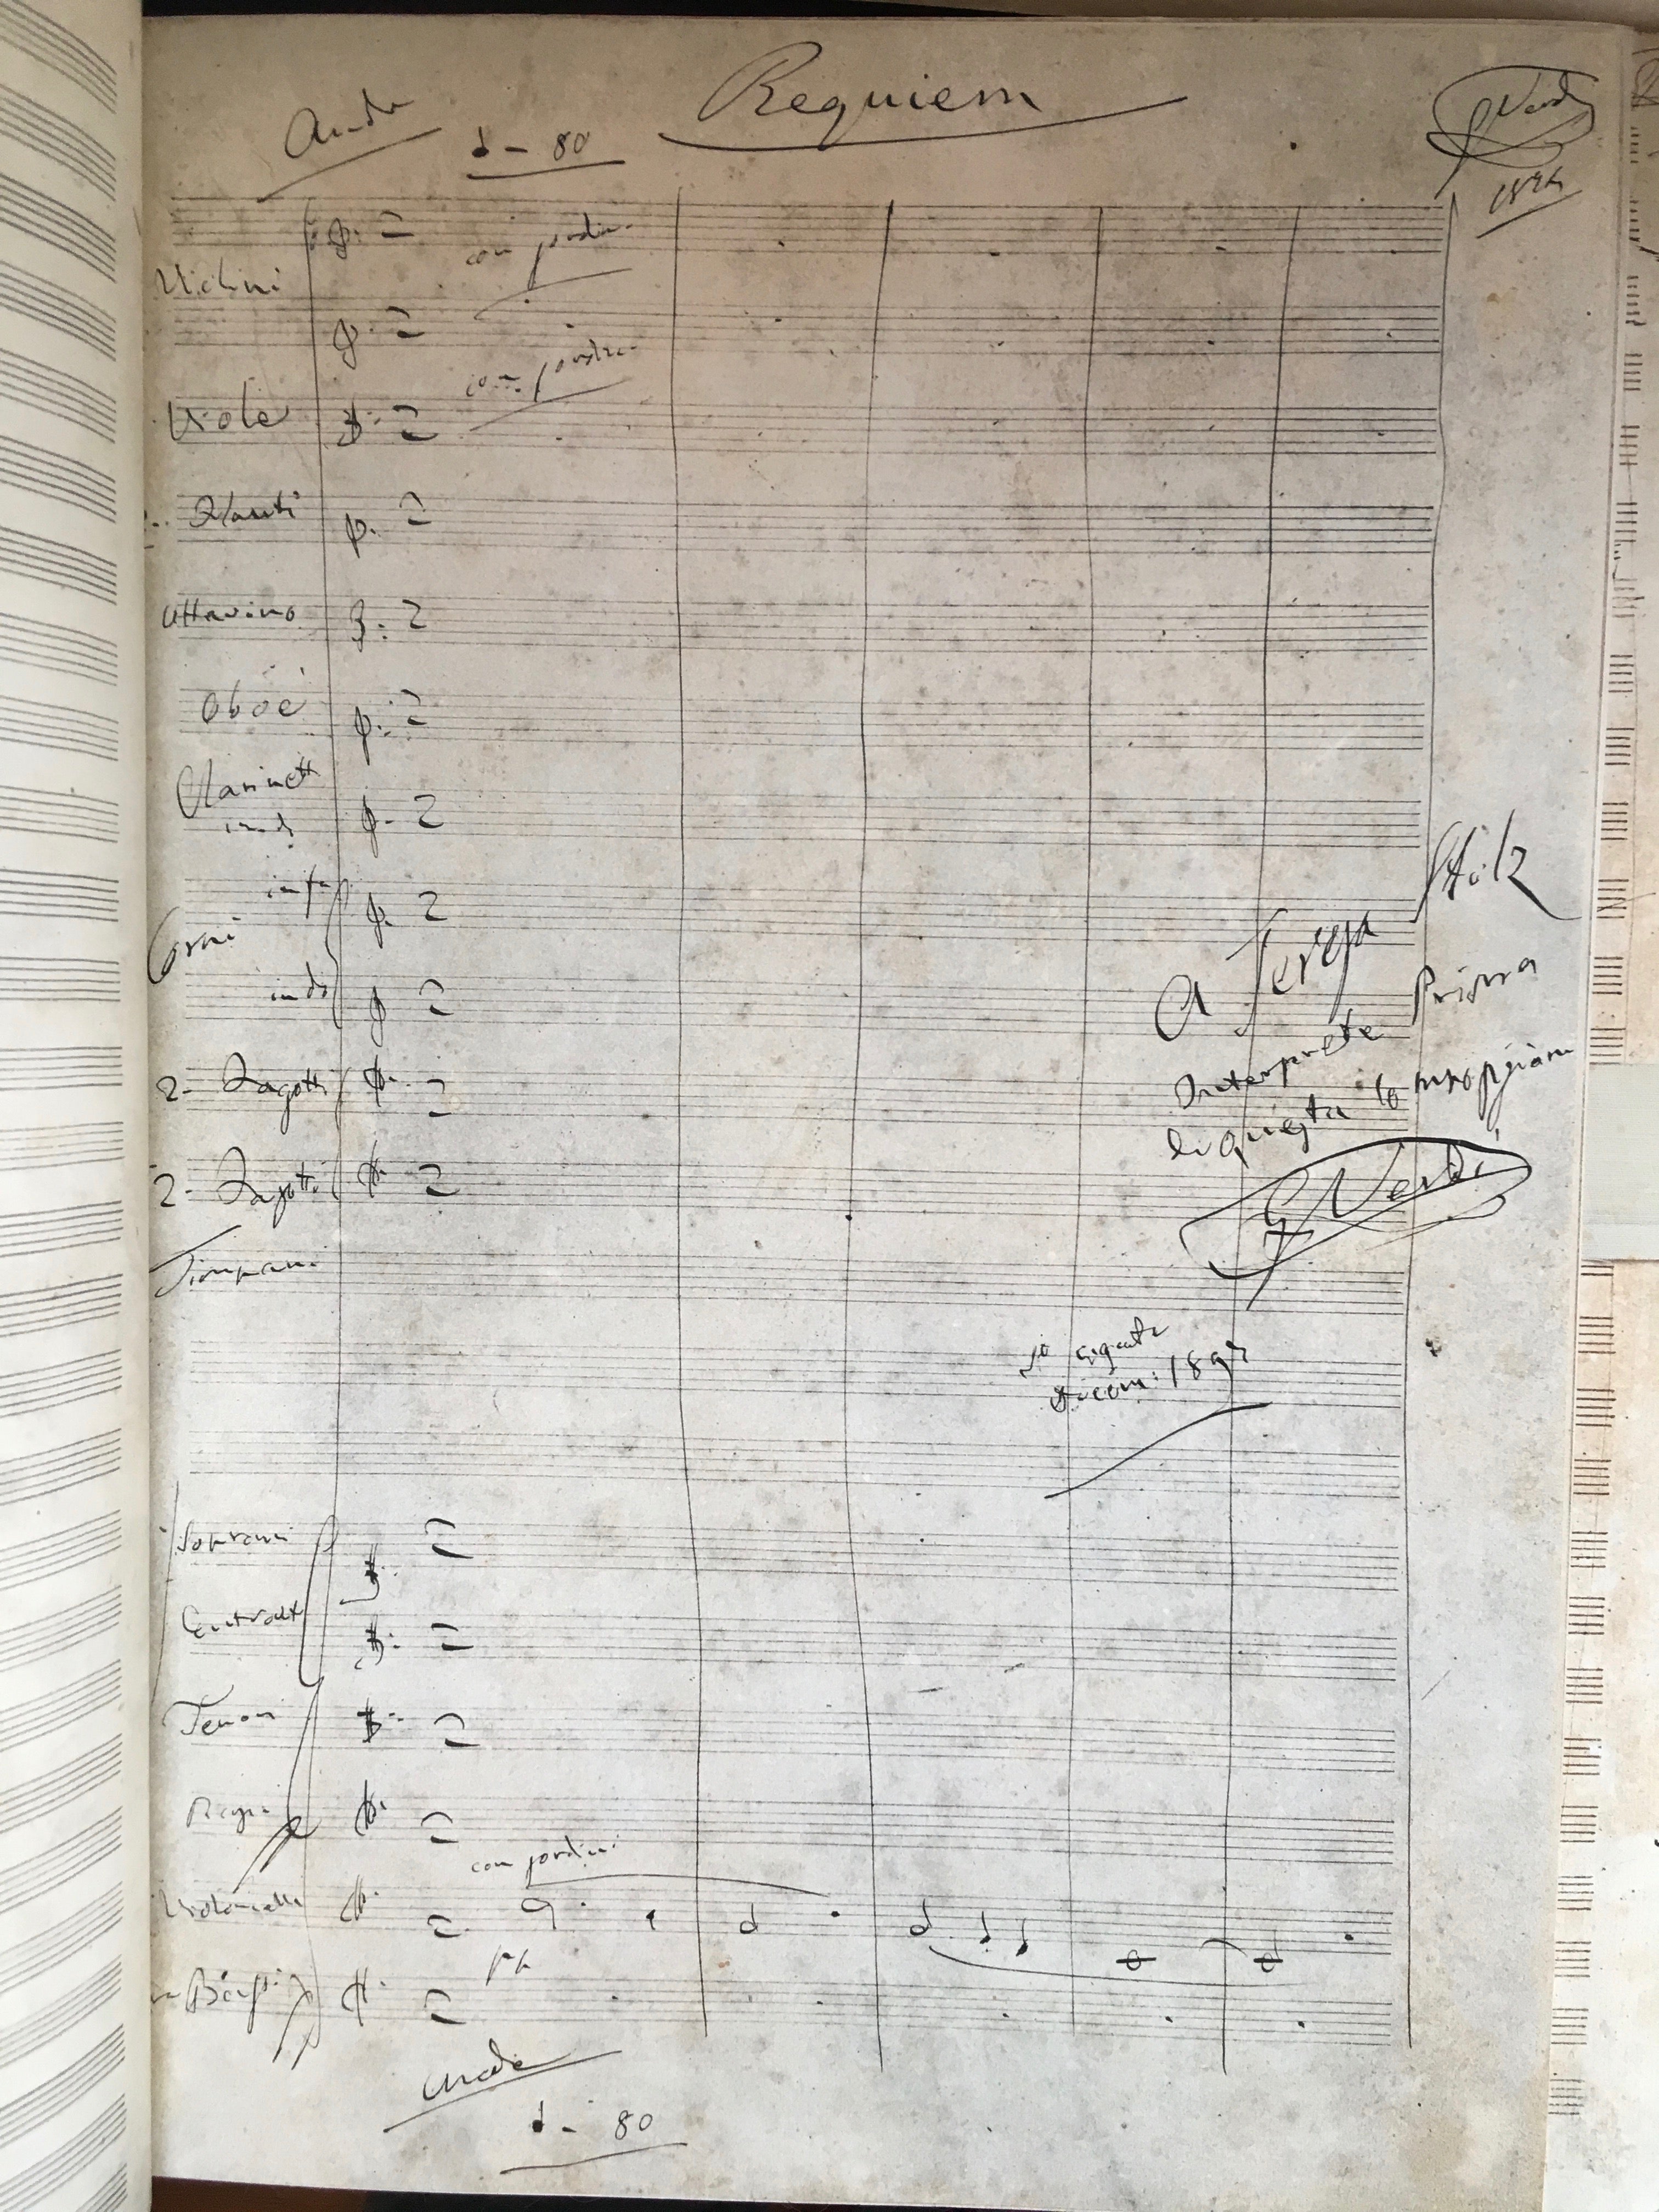 Requiem
Ande
𝅘𝅥 = 80
G Verdi
1874
Violini
con sordin.
con sordin.
Viole
Flauti
Ottavino
Oboè
Clarinetti
in do
Corni
in fa
in do
2- Fagotti
2- Fagotti
Timpani
A Teresa Stolz
Prima
Interprete
di questa Composizione
G Verdi
St Agata
Dicem: 1892
Soprani
Contralti
Tenori
Bassi
con sordini
Violoncelli
pp
Bassi
Ande
𝅘𝅥 = 80